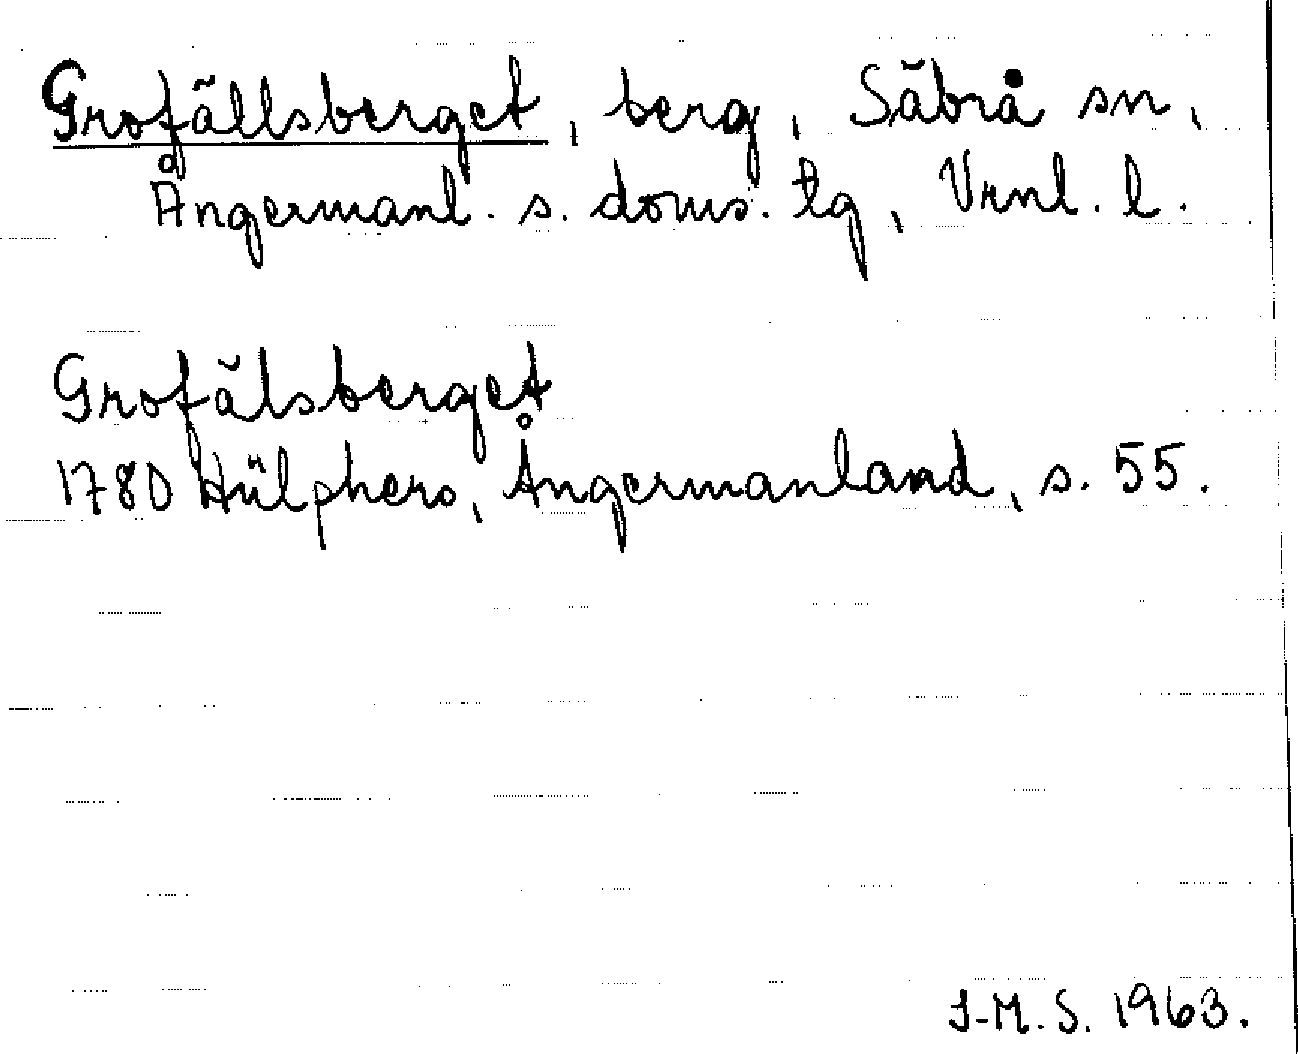 Grofällsberget, berg, Säbrå sn,
Ångermanl. s. doms. tg, Vrnl. l.
Grofälsberget
1780 Hülphers, Ångermanland, s. 55.
I-M. S. 1963.